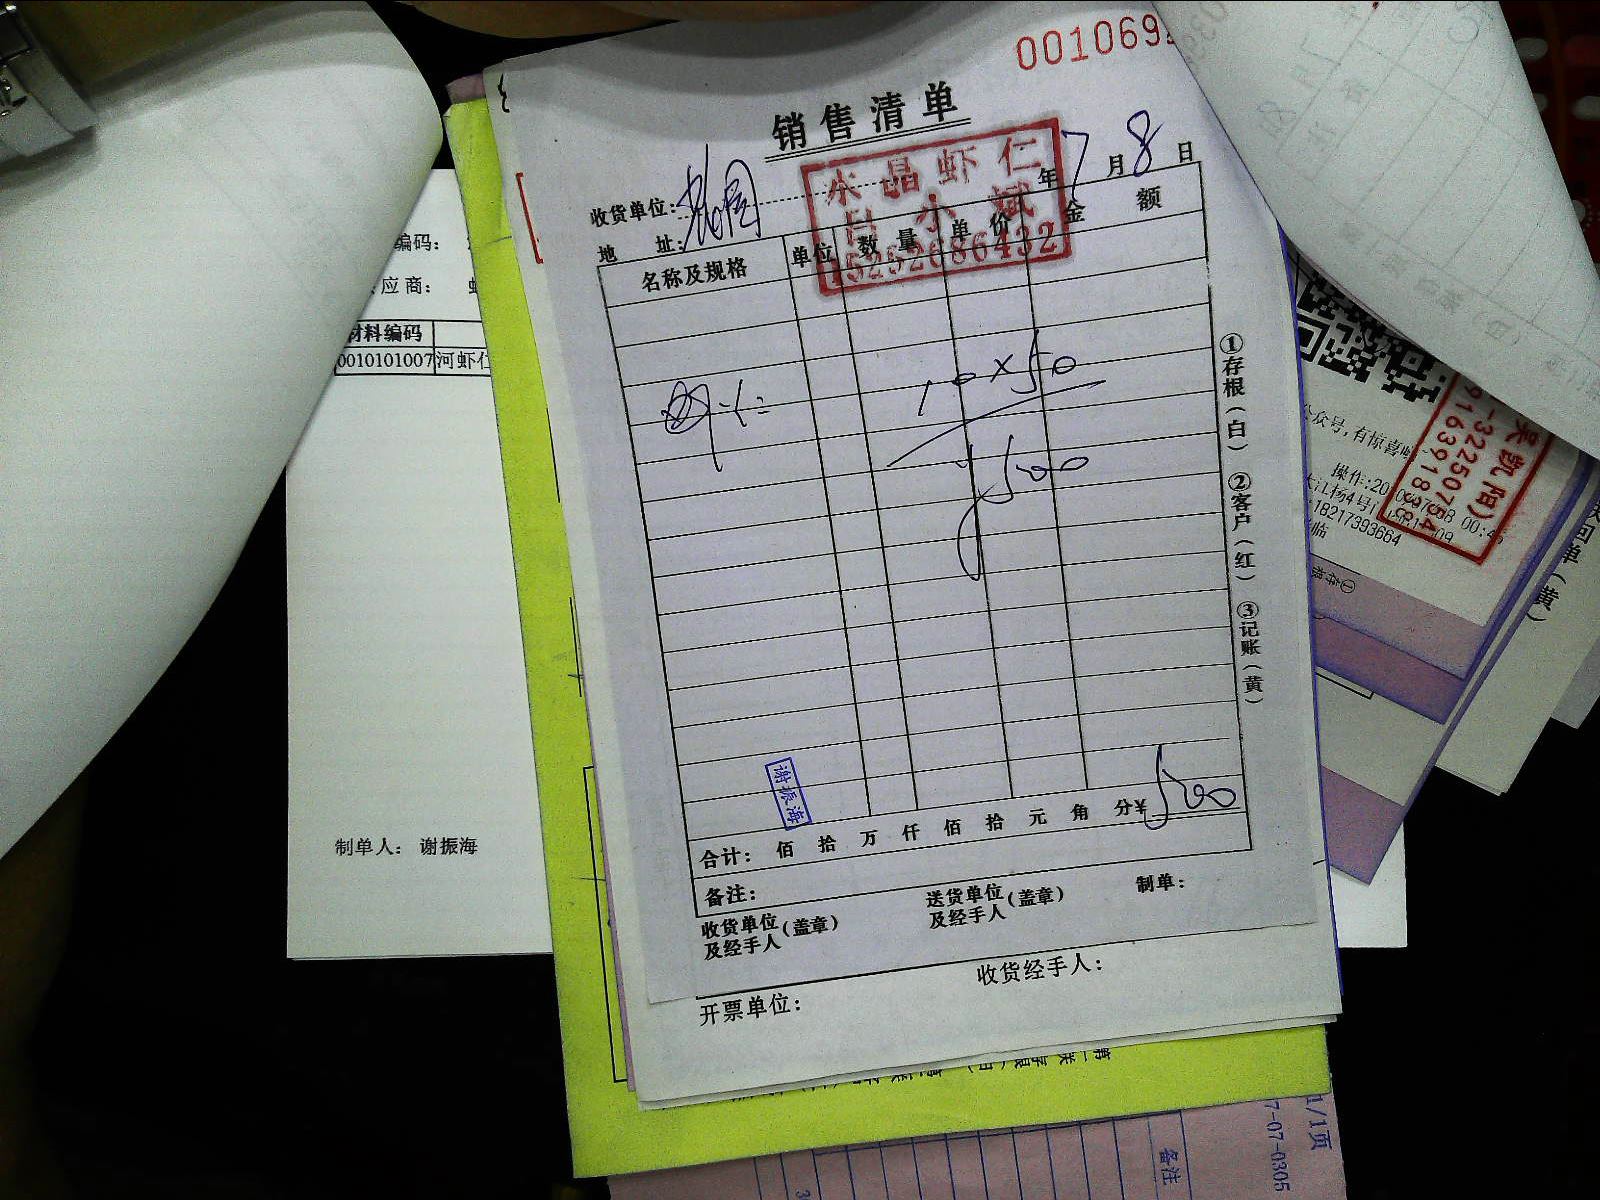 001069
销售清单
水晶虾仁
15252686432
年7月8日
收货单位:
地 址:
名称及规格 单位 数量 单价 金额
10×50
500
谢振海
合计: 佰 拾 万 仟 佰 拾 元 角 分¥ 500
备注:
收货单位及经手人(盖章) 送货单位及经手人(盖章) 制单:
①存根(白) ②客户(红) ③记账(黄)
收货经手人:
开票单位:
编码:
应商:
材料编码
0010101007 河虾仁
制单人: 谢振海
众号,有惊喜
操作:20
18217393664
吴凯阳)
-32250754
91639188
回单(黄)
①存根
1/1页
7-07-0305
备注